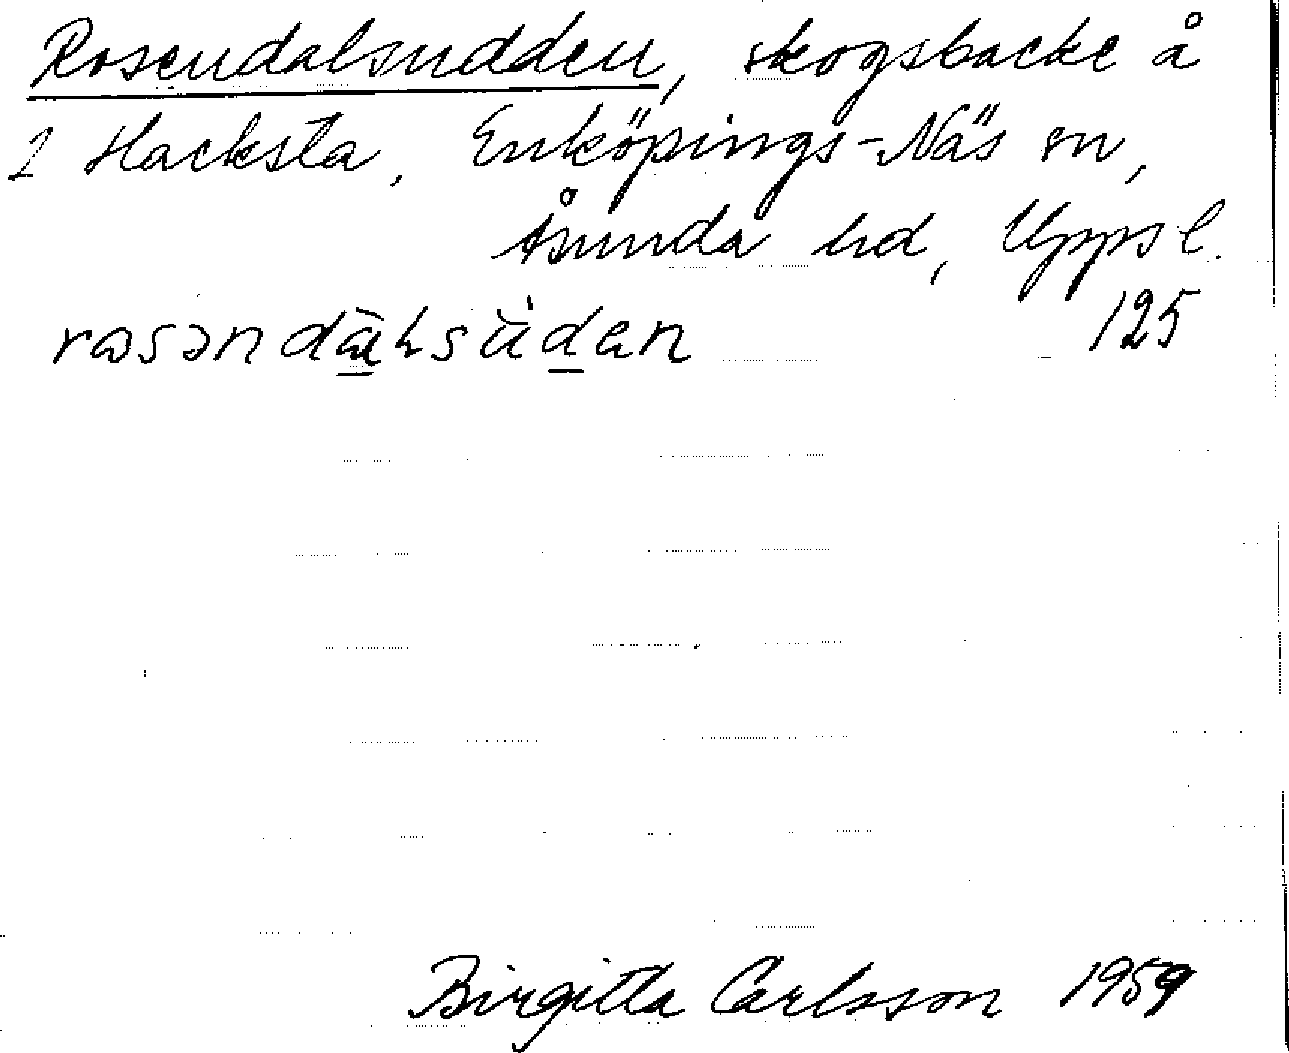 Rosendalsudden, skogsbacke å
2 Hacksta, Enköpings-Näs sn,
Åsunda hd, Uppsl.
125
Birgitta Carlsson 1959